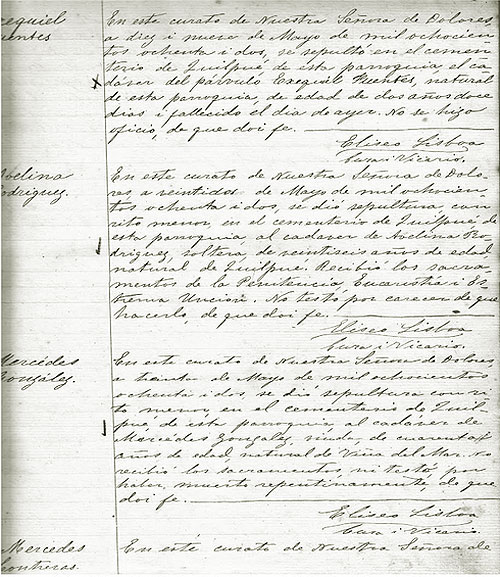 zequiel
uentes
En este curato de Nuestra Señora de Dolores,
a diez i nueve de Mayo de mil ochocien
tos ochenta i dos, se sepultó en el cemen
terio de Quilpué de esta parroquia el ca
dáver del párvulo Ezequiel Fuentes, natural
de esta parroquia, de edad de dos años doce
dias i fallecido el dia de ayer. No se hizo
oficio, de que doi fe.
Eliseo Lisboa
Cura i Vicario.
Avelina
odriguez.
En este curato de Nuestra Señora de Dolo
res, a veintidos de Mayo de mil ochocien
tos ochenta i dos, se dió sepultura, con
rito menor, en el cementerio de Quilpué, de
esta parroquia, al cadaver de Avelina Ro
driguez, soltera, de veintiseis años de edad,
natural de Quilpué. Recibió los sacra
mentos de la Penitencia, Eucaristia i Es
trema Uncion. No testó por carecer de que
hacerlo, de que doi fe.
Eliseo Lisboa
Cura i Vicario.
Mercedes
onzález.
En este curato de Nuestra Señora de Dolores,
a treinta de Mayo de mil ochocientos
ochenta i dos, se dió sepultura con ri
to menor, en el cementerio de Quil
pué, de esta parroquia, al cadáver de
Mercedes González, viuda, de cuarenta
años de edad, natural de Viña del Mar. No
recibió los sacramentos, ni testó por
haber muerto repentinamente, de que
doi fe.
Eliseo Lisboa
Cura i Vicario.
Mercedes
ontreras.
En este curato de Nuestra Señora de